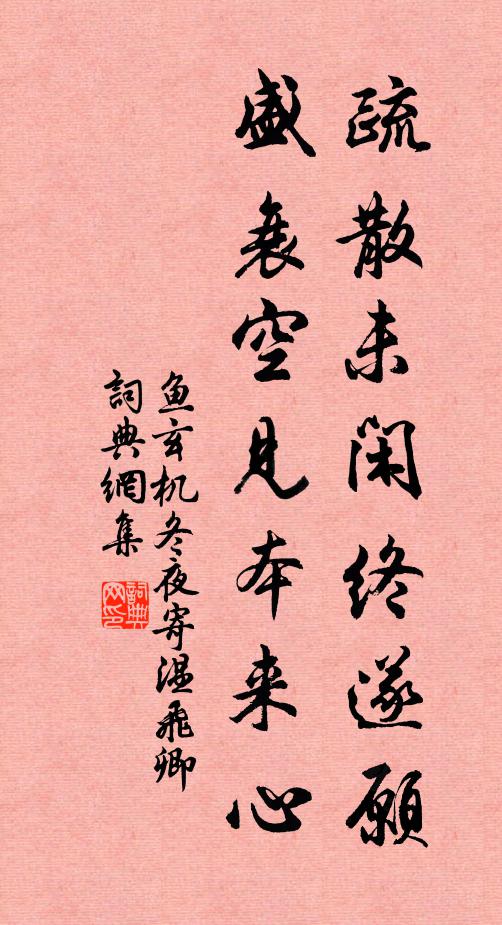 疏散未闲终遂愿
盛衰空见本来心
鱼玄机冬夜寄温飞卿
詞典網集
詞典网印